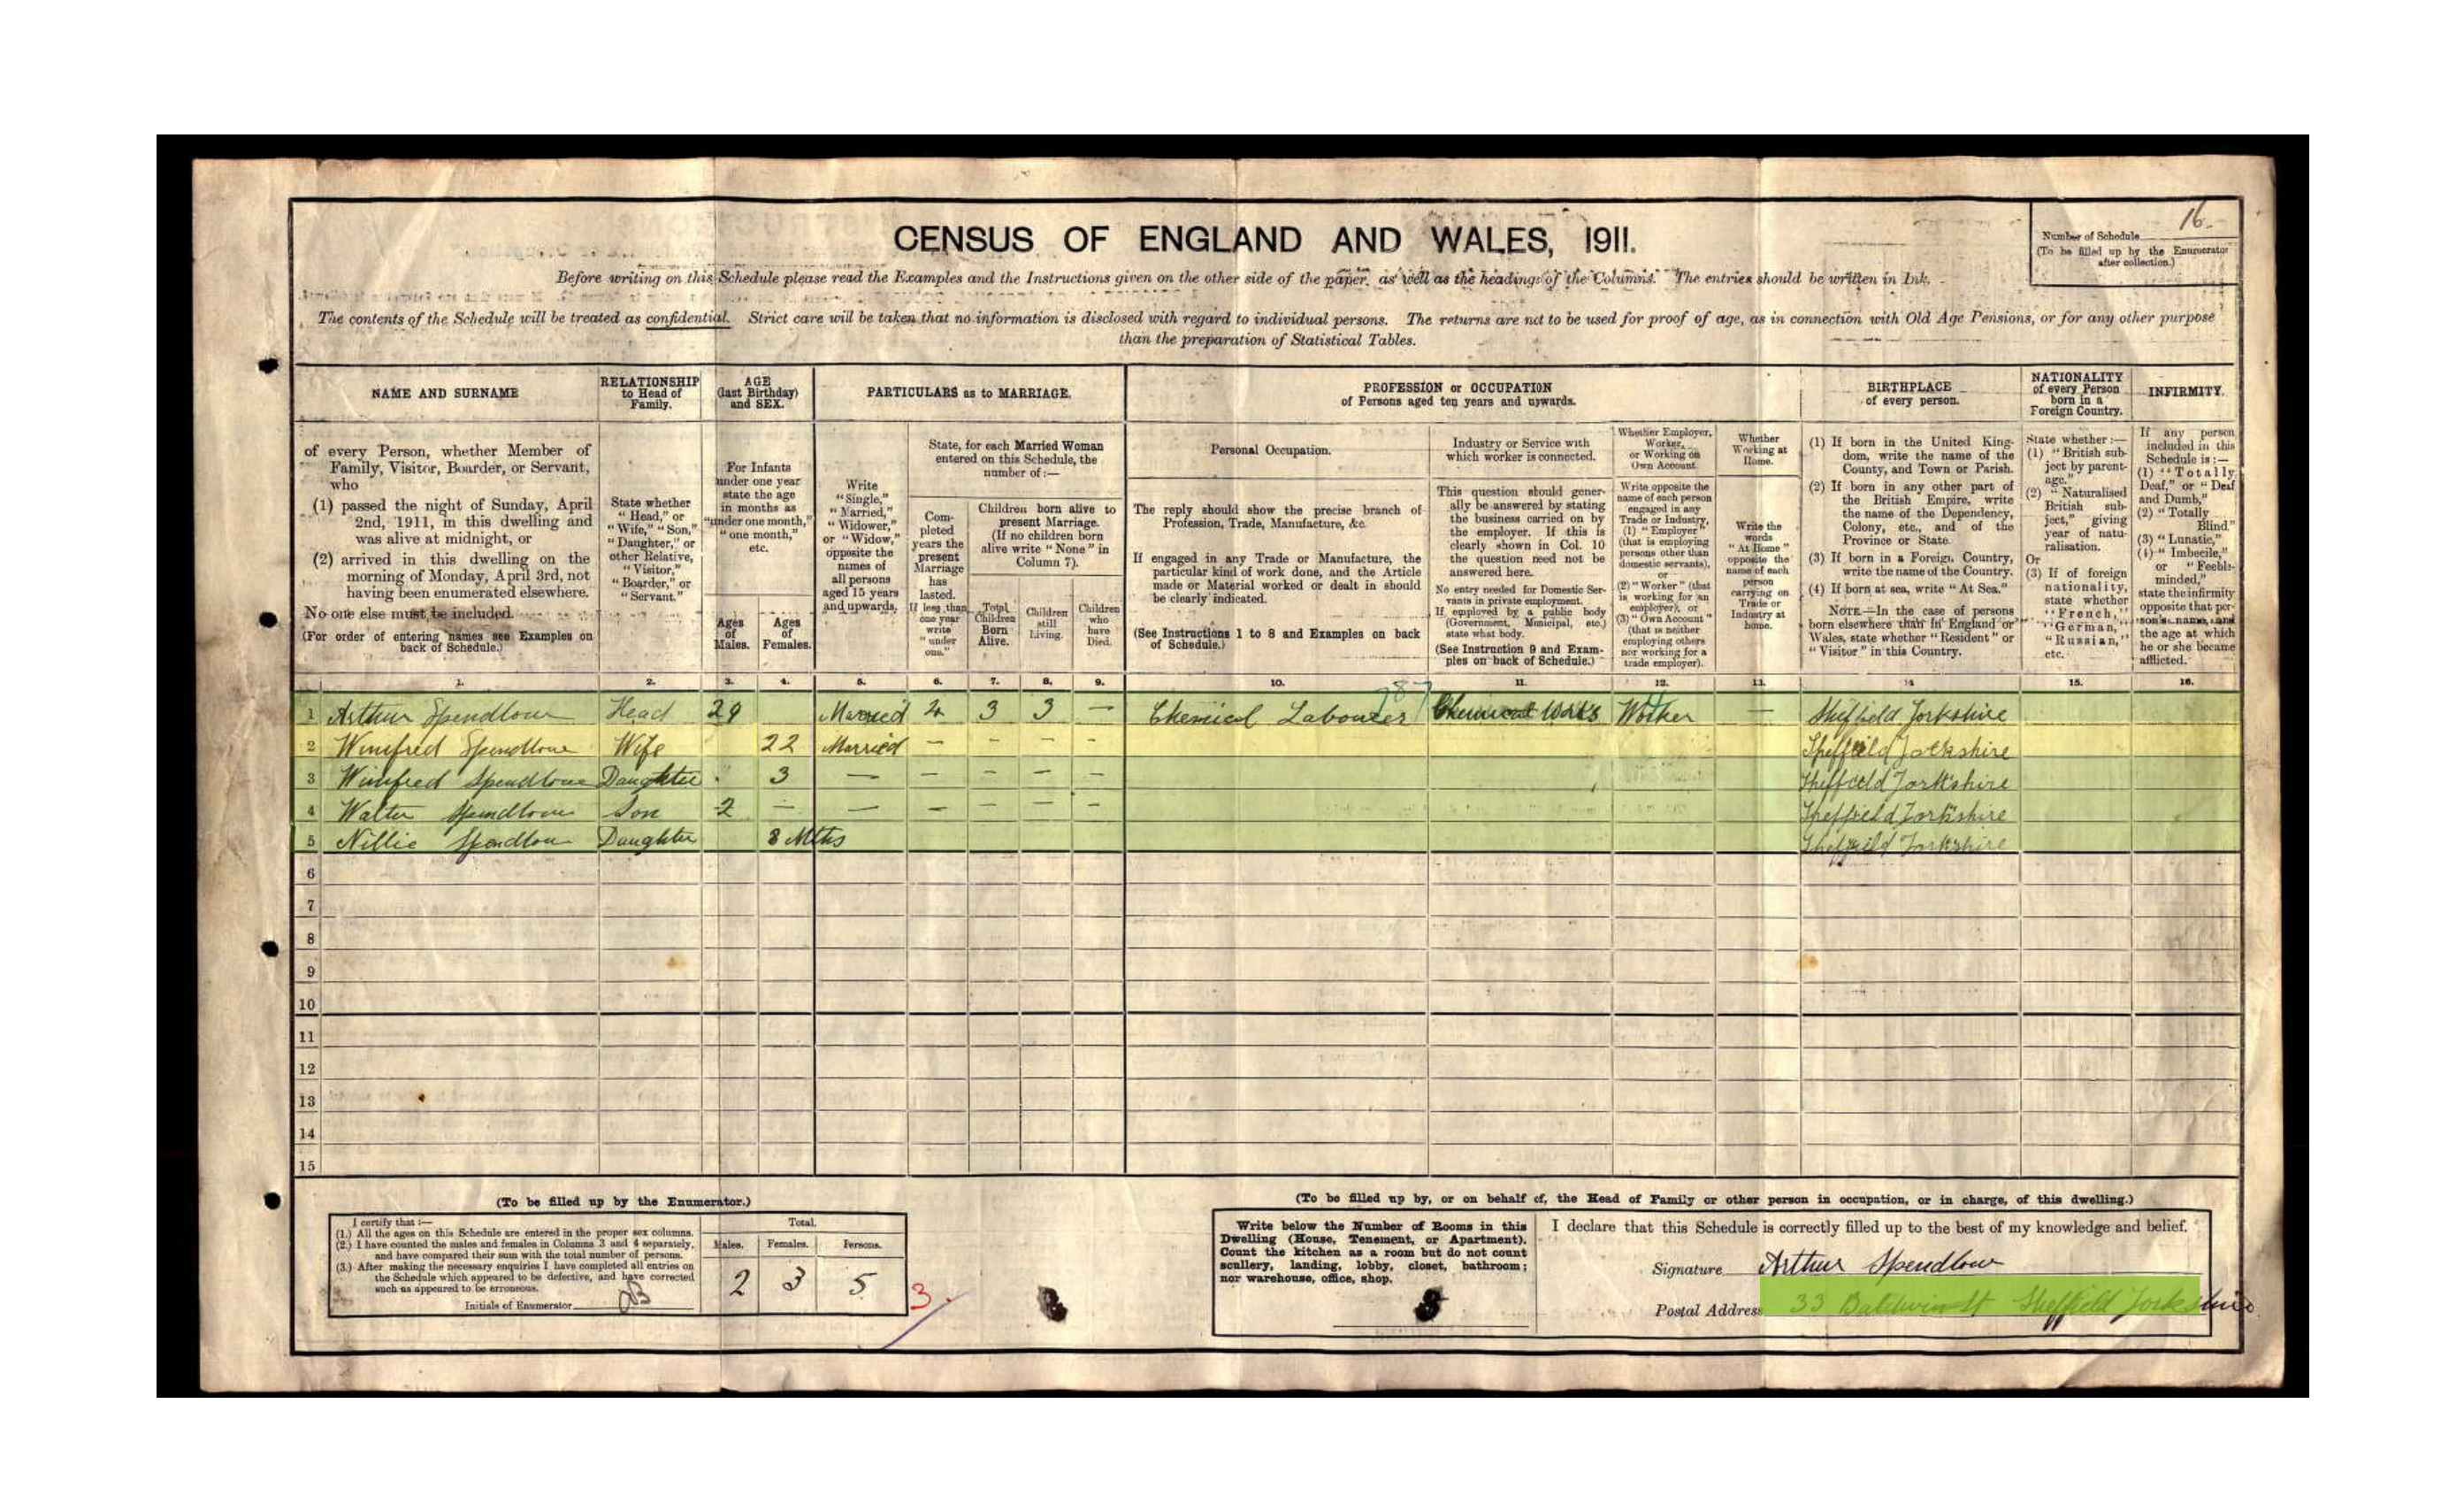 16
Number of Schedule
(To be filled up by the Enumerator
after collection.)
CENSUS OF ENGLAND AND WALES, 1911.
Before writing on this Schedule please read the Examples and the Instructions given on the other side of the paper, as well as the headings of the Columns. The entries should be written in Ink.
The contents of the Schedule will be treated as confidential. Strict care will be taken that no information is disclosed with regard to individual persons. The returns are not to be used for proof of age, as in connection with Old Age Pensions, or for any other purpose
than the preparation of Statistical Tables.
NAME AND SURNAME
of every Person, whether Member of
Family, Visitor, Boarder, or Servant,
who
(1) passed the night of Sunday, April
2nd, 1911, in this dwelling and
was alive at midnight, or
(2) arrived in this dwelling on the
morning of Monday, April 3rd, not
having been enumerated elsewhere.
No one else must be included.
(For order of entering names see Examples on
back of Schedule.)
RELATIONSHIP
to Head of
Family.
State whether
"Head," or
"Wife," "Son,"
"Daughter," or
other Relative,
"Visitor,"
"Boarder," or
"Servant."
AGE
(last Birthday)
and SEX.
For Infants
under one year
state the age
in months as
"under one month,"
"one month,"
etc.
Ages
of
Males.
Ages
of
Females.
PARTICULARS as to MARRIAGE.
Write
"Single,"
"Married,"
"Widower,"
or "Widow,"
opposite the
names of
all persons
aged 15 years
and upwards.
State, for each Married Woman
entered on this Schedule, the
number of:—
Com-
pleted
years the
present
Marriage
has
lasted.
If less than
one year
write
"under
one."
Children born alive to
present Marriage.
(If no children born
alive write "None" in
Column 7).
Total
Children
Born
Alive.
Children
still
Living.
Children
who
have
Died.
PROFESSION or OCCUPATION
of Persons aged ten years and upwards.
Personal Occupation.
The reply should show the precise branch of
Profession, Trade, Manufacture, &c.
If engaged in any Trade or Manufacture, the
particular kind of work done, and the Article
made or Material worked or dealt in should
be clearly indicated.
(See Instructions 1 to 8 and Examples on back
of Schedule.)
Industry or Service with
which worker is connected.
This question should gener-
ally be answered by stating
the business carried on by
the employer. If this is
clearly shown in Col. 10
the question need not be
answered here.
No entry needed for Domestic Ser-
vants in private employment.
If employed by a public body
(Government, Municipal, etc.)
state what body.
(See Instruction 9 and Exam-
ples on back of Schedule.)
Whether Employer,
Worker,
or Working on
Own Account.
Write opposite the
name of each person
engaged in any
Trade or Industry,
(1) "Employer"
(that is employing
persons other than
domestic servants),
or
(2) "Worker" (that
is working for an
employer), or
(3) "Own Account"
(that is neither
employing others
nor working for a
trade employer).
Whether
Working at
Home.
Write the
words
"At Home"
opposite the
name of each
person
carrying on
Trade or
Industry at
home.
BIRTHPLACE
of every person.
(1) If born in the United King-
dom, write the name of the
County, and Town or Parish.
(2) If born in any other part of
the British Empire, write
the name of the Dependency,
Colony, etc., and of the
Province or State.
(3) If born in a Foreign Country,
write the name of the Country.
(4) If born at sea, write "At Sea."
NOTE.—In the case of persons
born elsewhere than in England or
Wales, state whether "Resident" or
"Visitor" in this Country.
NATIONALITY
of every Person
born in a
Foreign Country.
State whether:—
(1) "British sub-
ject by parent-
age."
(2) "Naturalised
British sub-
ject," giving
year of natu-
ralisation.
Or
(3) If of foreign
nationality,
state whether
"French,"
"German,"
"Russian,"
etc.
INFIRMITY.
If any person
included in this
Schedule is:—
(1) "Totally
Deaf," or "Deaf
and Dumb,"
(2) "Totally
Blind,"
(3) "Lunatic,"
(4) "Imbecile,"
or "Feeble-
minded,"
state the infirmity
opposite that per-
son's name, and
the age at which
he or she became
afflicted.
1. 2. 3. 4. 5. 6. 7. 8. 9. 10. 11. 12. 13. 14 15. 16.
787
1 Arthur Spendlove Head 29 Married 4 3 3 — Chemical Labourer Chemical Works Worker — Sheffield Yorkshire
2 Winifred Spendlove Wife 22 Married — — — — Sheffield Yorkshire
3 Winifred Spendlove Daughter 3 — — — — — Sheffield Yorkshire
4 Walter Spendlove Son 2 — — — — — — Sheffield Yorkshire
5 Nillie Spendlove Daughter 8 Mths Sheffield Yorkshire
6
7
8
9
10
11
12
13
14
15
(To be filled up by the Enumerator.)
I certify that:—
(1.) All the ages on this Schedule are entered in the proper sex columns.
(2.) I have counted the males and females in Columns 3 and 4 separately,
and have compared their sum with the total number of persons.
(3.) After making the necessary enquiries I have completed all entries on
the Schedule which appeared to be defective, and have corrected
such as appeared to be erroneous.
Initials of Enumerator
Total.
Males. Females. Persons.
2 3 5
3.
(To be filled up by, or on behalf of, the Head of Family or other person in occupation, or in charge, of this dwelling.)
Write below the Number of Rooms in this
Dwelling (House, Tenement, or Apartment).
Count the kitchen as a room but do not count
scullery, landing, lobby, closet, bathroom;
nor warehouse, office, shop.
I declare that this Schedule is correctly filled up to the best of my knowledge and belief.
Signature Arthur Spendlove
Postal Address 33 Baldwin St Sheffield Yorkshire